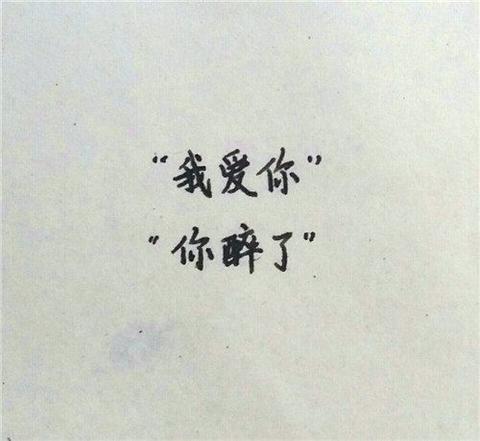 “我爱你”
“你醉了”